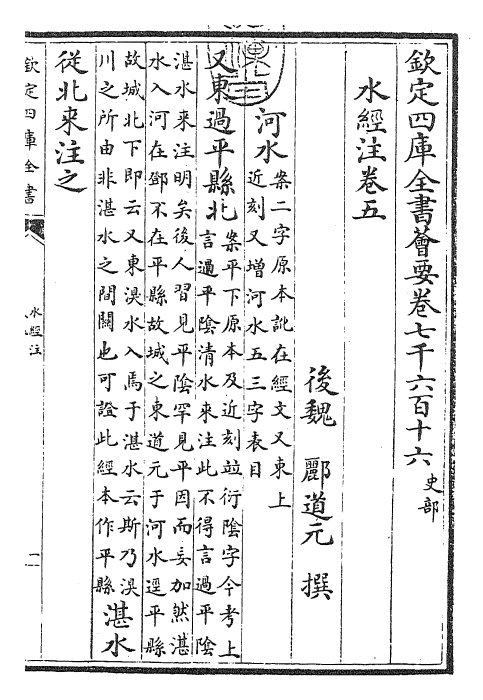 欽定四庫全書薈要卷七千六百十六 史部
水經注卷五
後魏 酈道元 撰
河水 案二字原本訛在經文又東上
近刻又增河水五三字表目
又東過平縣北 案平下原本及近刻竝衍陰字今考上
言過平陰清水來注此不得言過平陰
湛水來注明矣後人習見平陰罕見平因而妄加然湛
水入河在鄧不在平縣故城之東道元于河水逕平縣
故城北下即云又東溴水入焉于湛水云斯乃溴
川之所由非湛水之間關也可證此經本作平縣
湛水
從北來注之
欽定四庫全書
水經注
一